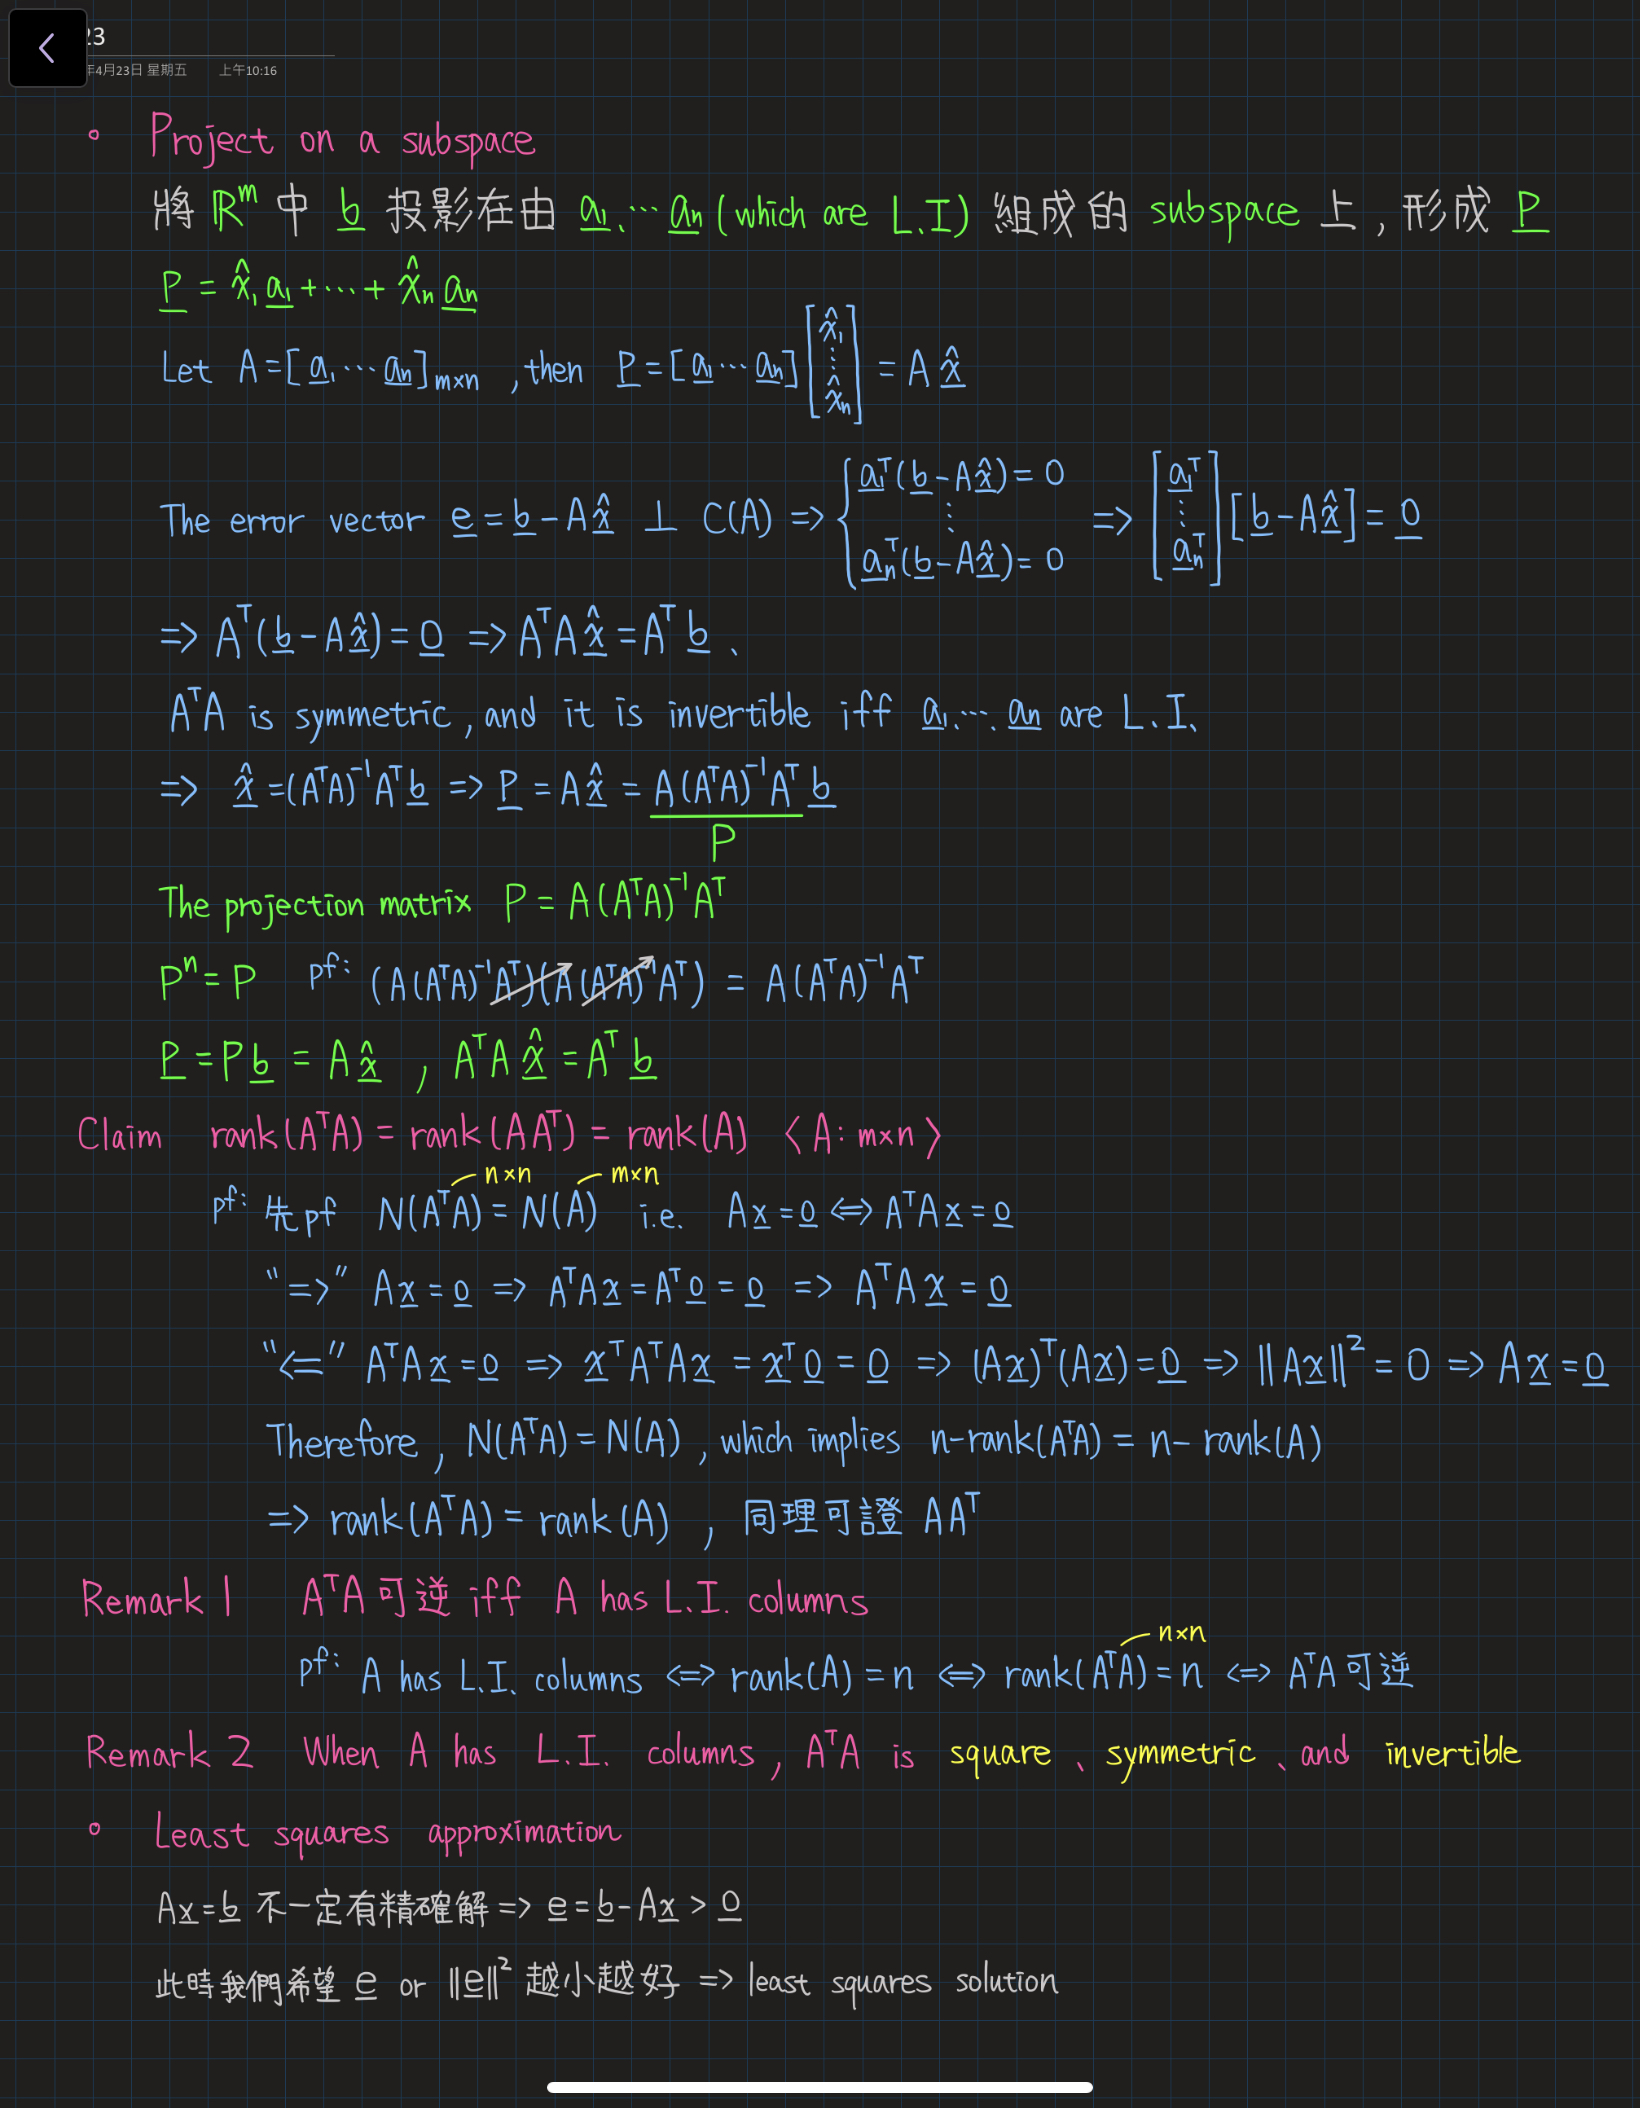 23
年4月23日 星期五 上午10:16
° Project on a subspace
將 ℝᵐ 中 b 投影在由 a₁、…aₙ (which are L.I) 組成的 subspace 上, 形成 P
P = x̂₁a₁+⋯+x̂ₙaₙ
Let A=[a₁⋯aₙ]ₘₓₙ , then P=[a₁⋯aₙ][x̂₁ ⋮ x̂ₙ] = A x̂
The error vector e = b - A x̂ ⊥ C(A) => { a₁ᵀ(b-Ax̂) = 0 ⋮ aₙᵀ(b-Ax̂) = 0 => [a₁ᵀ ⋮ aₙᵀ][b-Ax̂] = 0
=> Aᵀ(b-Ax̂) = 0 => AᵀA x̂ = Aᵀ b 、
AᵀA is symmetric, and it is invertible iff a₁、…、aₙ are L.I、
=> x̂ =(AᵀA)⁻¹Aᵀb => P = A x̂ = A(AᵀA)⁻¹Aᵀ b
P
The projection matrix P = A(AᵀA)⁻¹Aᵀ
Pⁿ = P pf: (A(AᵀA)⁻¹Aᵀ)(A(AᵀA)⁻¹Aᵀ) = A(AᵀA)⁻¹Aᵀ
P = Pb = A x̂ , AᵀA x̂ = Aᵀ b
Claim rank(AᵀA) = rank(AAᵀ) = rank(A) 〈A: m×n〉
n×n m×n
pf: 先pf N(AᵀA) = N(A) i.e. Ax = 0 <=> AᵀAx = 0
"=>" Ax = 0 => AᵀAx = Aᵀ0 = 0 => AᵀAx = 0
"<=" AᵀAx = 0 => xᵀAᵀAx = xᵀ0 = 0 => (Ax)ᵀ(Ax) = 0 => ||Ax||² = 0 => Ax = 0
Therefore, N(AᵀA) = N(A), which implies n-rank(AᵀA) = n- rank(A)
=> rank(AᵀA) = rank(A) , 同理可證 AAᵀ
Remark 1 AᵀA 可逆 iff A has L.I. columns
n×n
pf: A has L.I. columns <=> rank(A) = n <=> rank(AᵀA) = n <=> AᵀA 可逆
Remark 2 When A has L.I. columns, AᵀA is square、symmetric、and invertible
° Least squares approximation
Ax=b 不一定有精確解 => e = b-Ax > 0
此時我們希望 e or ||e||² 越小越好 => least squares solution